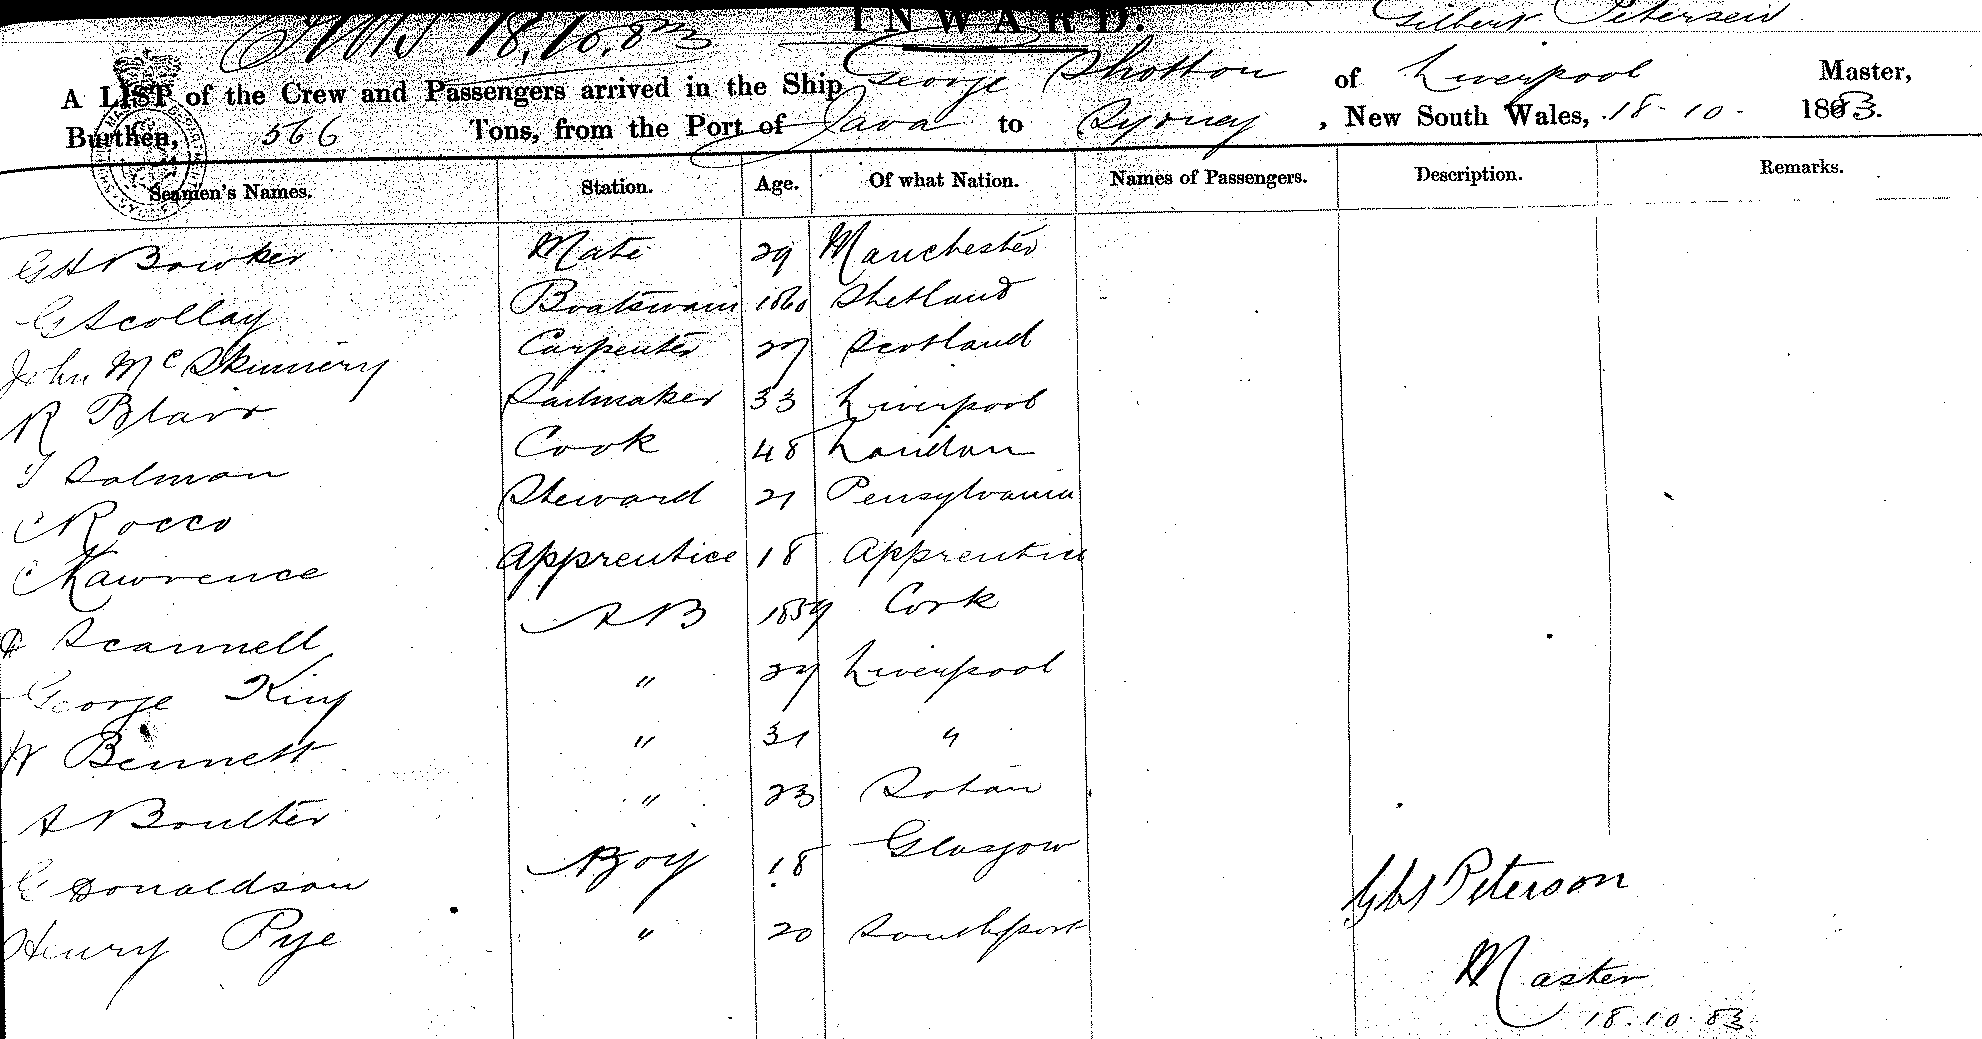 18.10.83
INWARD.
Gilbert Petersen
A LIST of the Crew and Passengers arrived in the Ship George Shotton of Liverpool Master,
Burthen, 566 Tons, from the Port of Java to Sydney, New South Wales, 18-10-1883.
Seamen's Names. Station. Age. Of what Nation. Names of Passengers. Description. Remarks.
GH Bowker Mate 29 Manchester
G Scollay Boatswain 1860 Shetland
John Mc Skimmery Carpenter 27 Scotland
R Blair Sailmaker 33 Liverpool
Salmon Cook 48 London
C Rocco Steward 21 Pensylvania
C Lawrence Apprentice 18 Apprentice
D Scannell AB 1859 Cork
George King " 27 Liverpool
W Bennett " 31 "
A Boulter " 23
G Donaldson Boy 18 Glasgow
Henry Pye " 20 Southport
Gbt Peterson
Master
18.10.83